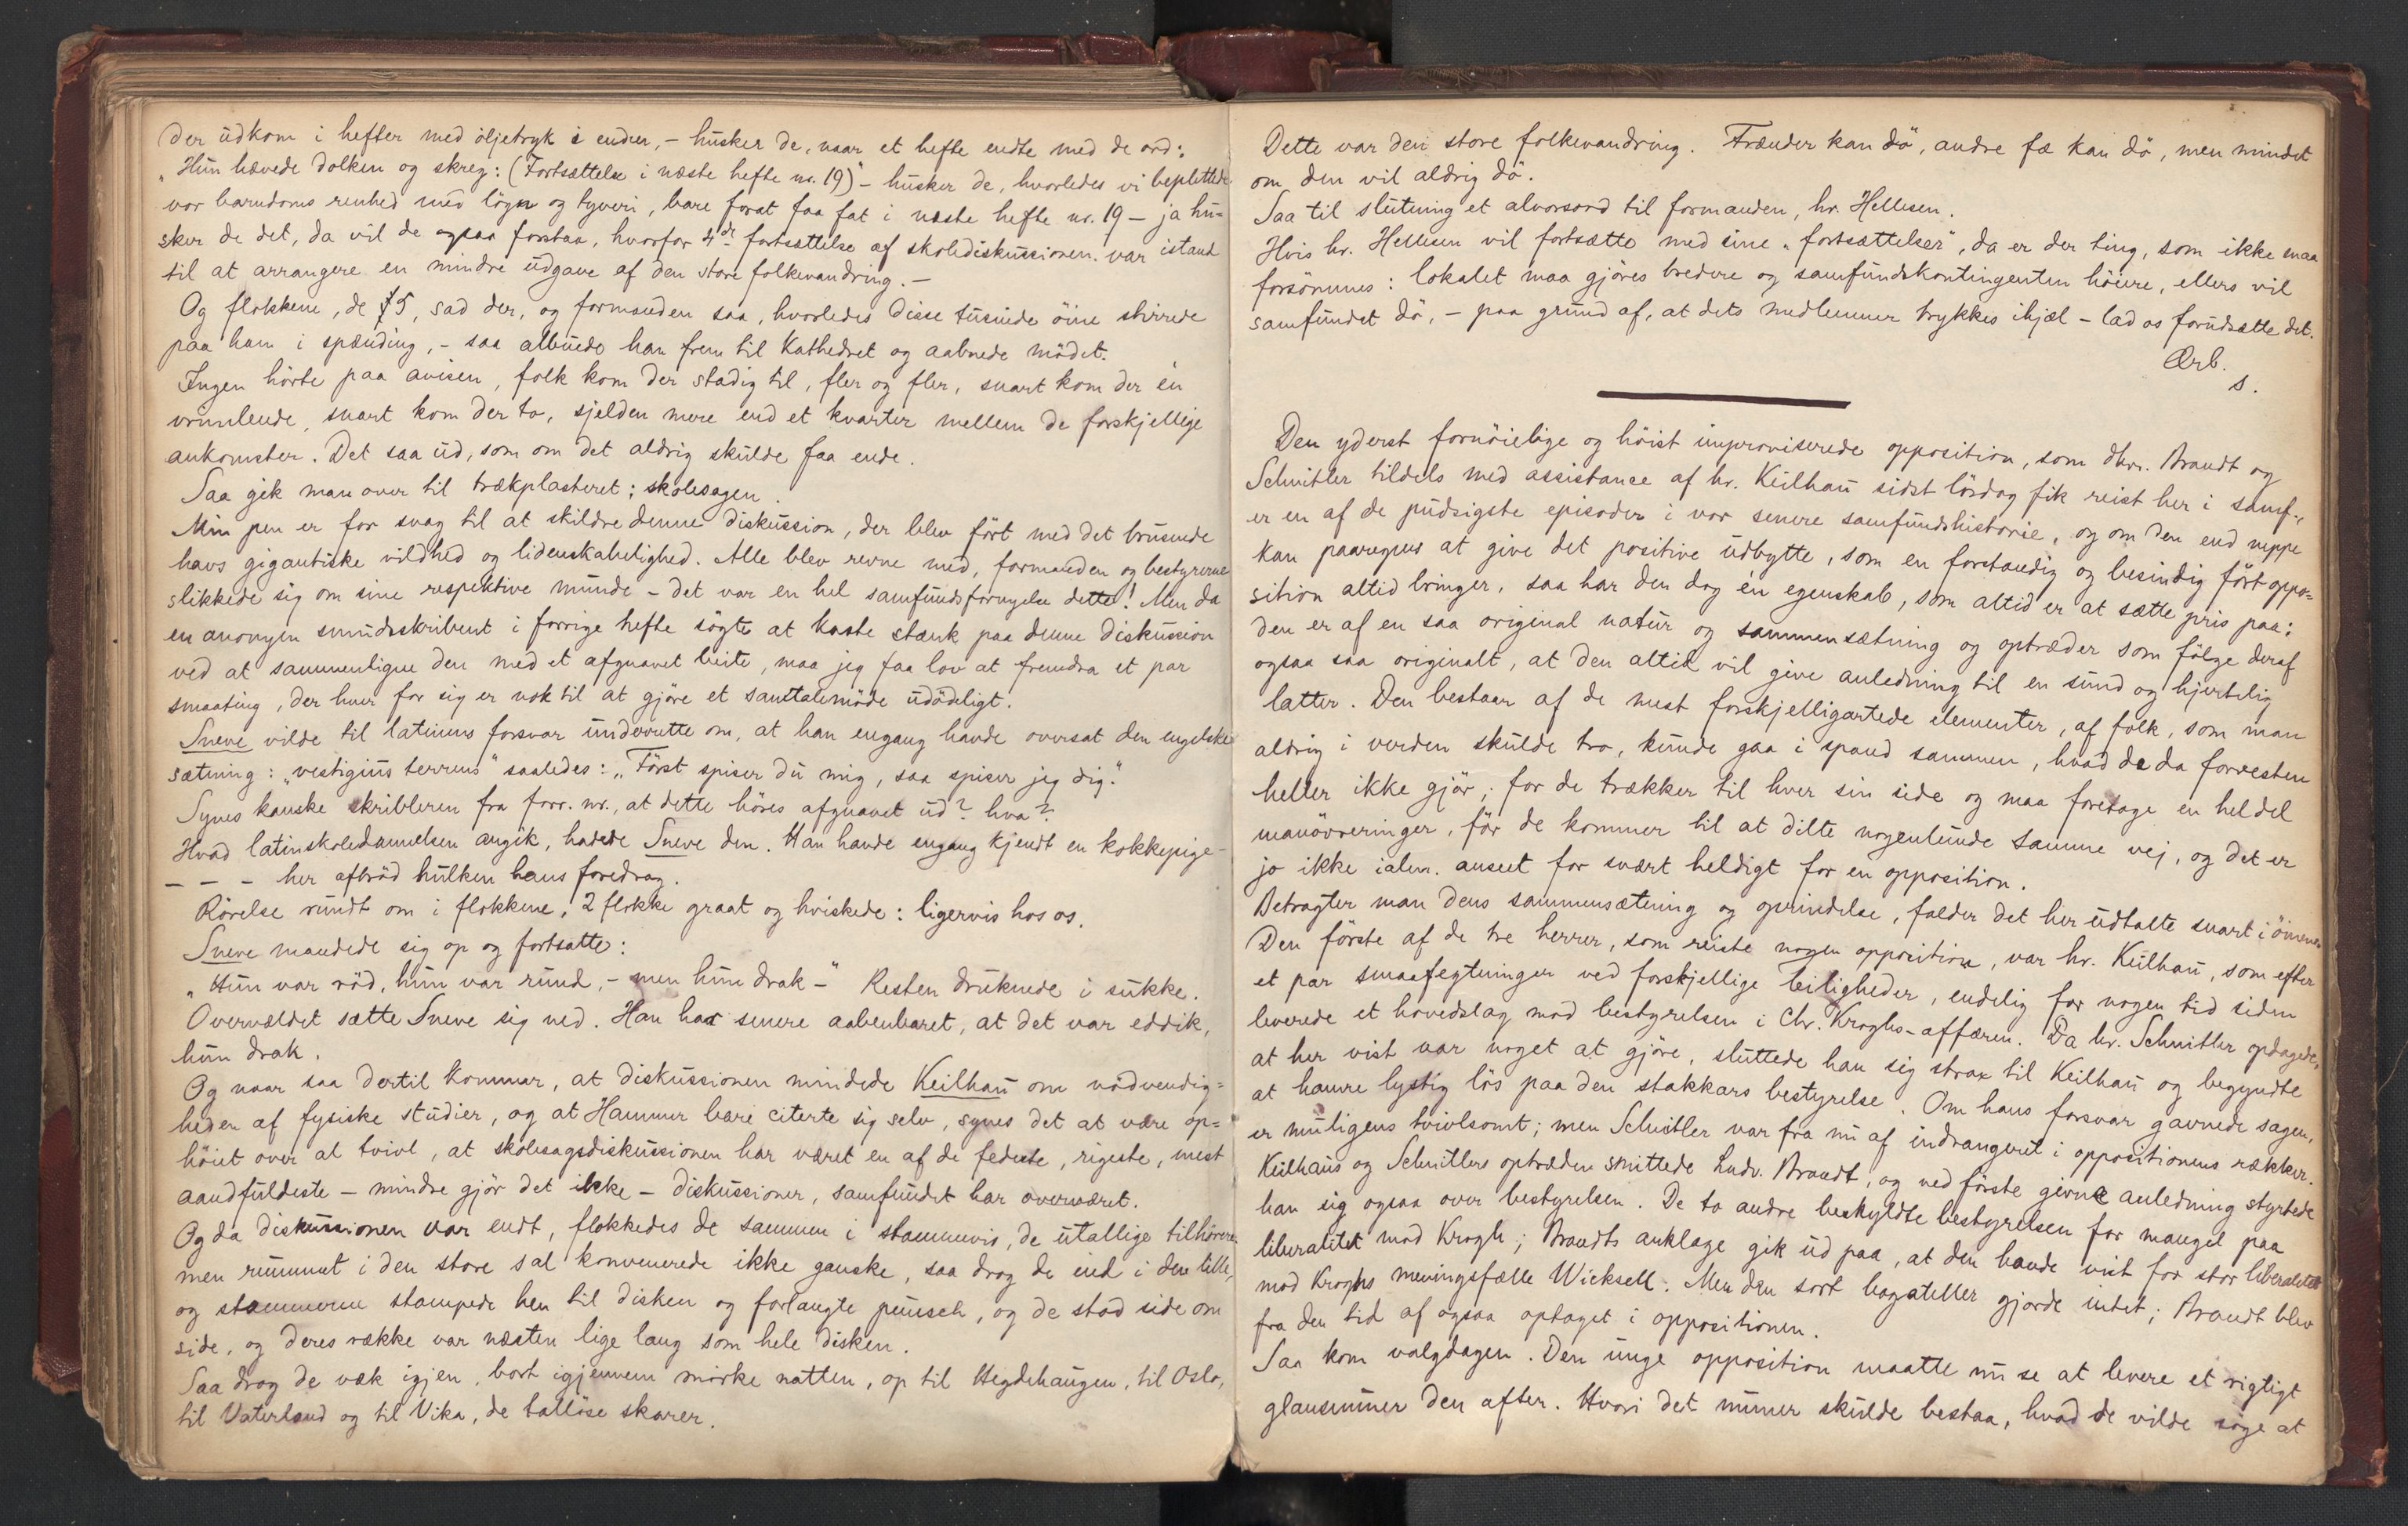 der udkom i hefter med oljetryk i enden, – husker de, naar et hefte endte med de ord:
„Hun hævede dolken og skreg: (Fortsættelse i næste hefte nr. 19)" – husker de, hvorledes vi beplettede
vor barndoms renhed med løgn og tyveri, bare forat faa fat i næste hefte nr. 19 – ja hu=
sker de det, da vil de ogsaa forstaa, hvorfor 4de fortsættelse af skolediskussionen var istand
til at arrangere en mindre udgave af den store folkevandring. –
Og flokkene, de 75, sad der, og formanden saa, hvorledes disse tusinde öine stirrede
paa ham i spænding, – saa albuede han frem til Kathedret og aabnede mödet.
Ingen hörte paa avisen, folk kom der stadig til, fler og fler, snart kom der én
vrimlende, snart kom der to, sjelden mere end et kvarter mellem de forskjellige
ankomster. Det saa ud, som om det aldrig skulde faa ende.
Saa gik man over til trækplasteret; skolesagen.
Min pen er for svag til at skildre denne diskussion, der blev fört med det brusende
havs gigantiske vildhed og lidenskabelighed. Alle blev revne med, formanden og bestyrerne
slikkede sig om sine respektive munde – det var en hel samfundsfornyelse dette! Men da
en anonym smudsskribent i forrige hefte sögte at kaste stænk paa denne diskussion
ved at sammenligne den med et afgnavet beite, maa jeg faa lov at fremdra et par
smaating, der hver for sig er nok til at gjöre et samtalemöde udödeligt.
Sneve vilde til latinens forsvar underrette om, at han engang havde oversat den engelske
sætning: „vestigius terrens" saaledes: „Först spiser du mig, saa spiser jeg dig."
Synes kanske skribleren fra forr. nr., at dette höres afgnavet ud? hva?
Hvad latinskoledannelsen angik, hadede Sneve den. Han havde engang kjendt en kokkepige –
– – – her afbröd hulken hans foredrag.
Rörelse rundt om i flokkene, 2 flokke graat og hviskede: ligervis hos os.
Sneve mandede sig op og fortsatte:
„Hun var röd, hun var rund, – men hun drak –" Resten druknede i sukke.
Overvældet satte Sneve sig ned. Han har senere aabenbaret, at det var eddik,
hun drak.
Og naar saa dertil kommer, at diskussionen mindede Keilhau om nödvendig=
heden af fysiske studier, og at Hammer bare citerte sig selv, synes det at være op=
höiet over al tvivl, at skolesagsdiskussionen har været en af de fedeste, rigeste, mest
aandfuldeste – mindre gjör det ikke – diskussioner, samfundet har overværet.
Og da diskussionen var endt, flokkedes de sammen i stammevis, de utallige tilhörere
men rummet i den store sal konvenerede ikke ganske, saa drog de ind i den lille,
og stammerne stampede hen til disken og forlangte punsch, og de stod side om
side, og deres række var næsten lige lang som hele disken.
Saa drog de væk igjen, bort igjennem mörke natten, op til Hegdehaugen, til Oslo,
til Vaterland og til Vika, de talløse skarer.
Dette var den store folkevandring. Frænder kan dö, andre fæ kan dö, men mindet
om den vil aldrig dö.
Saa til slutning et alvorsord til formanden, hr. Hellesen.
Hvis hr. Hellesen vil fortsætte med sine „fortsættelser", da er der ting, som ikke maa
forsömmes: lokalet maa gjöres bredere og samfundskontingenten höiere, ellers vil
samfundet dö, – paa grund af, at dets medlemmer trykkes ihjæl – lad os forudsætte det.
Ærb.
s.
Den yderst fornöielige og höist improviserede opposition, som dhrr. Brandt og
Schnitler tildels med assistance af hr. Keilhau sidst lördag fik reist her i samf.,
er en af de pudsigste episoder i vor senere samfundshistorie, og om den end neppe
kan paaregnes at give det positive udbytte, som en forstandig og besindig fört oppo=
sition altid bringer, saa har den dog én egenskab, som altid er at sætte pris paa:
den er af en saa original natur og sammensætning og optræder som fölge deraf
ogsaa saa originalt, at den altid vil give anledning til en sund og hjertelig
latter. Den bestaar af de mest forskjelligartede elementer, af folk, som man
aldrig i verden skulde tro, kunde gaa i spand sammen, hvad de da forresten
heller ikke gjör; for de trækker til hver sin side og maa foretage en hel del
manövreringer, för de kommer til at dilte nogenlunde samme vej, og det er
jo ikke ialm. anseet for svært heldigt for en opposition.
Betragter man dens sammensætning og oprindelse, falder det her udtalte snart i öinene
Den förste af de tre herrer, som reiste nogen opposition, var hr. Keilhau, som efter
et par smaafegtninger ved forskjellige leiligheder, endelig for nogen tid siden
leverede et hovedslag mod bestyrelsen i Chr. Kroghs-affæren. Da hr. Schnitler opdagede,
at her vist var noget at gjöre, sluttede han sig strax til Keilhau og begyndte
at hamre lystig lös paa den stakkars bestyrelse. Om hans forsvar gavnede sagen,
er muligens tvivlsomt; men Schnitler var fra nu af indrangeret i oppositionens rækker.
Keilhaus og Schnitlers optræden smittede Ludv. Brandt, og ved förste givne anledning styrtede
han sig ogsaa over bestyrelsen. De to andre beskyldte bestyrelsen for mangel paa
liberalitet mod Krogh; Brandts anklage gik ud paa, at den havde vist for stor liberalitet
mod Kroghs meningsfælle Wicksell. Men den sort bagateller gjorde intet; Brandt blev
fra den tid af ogsaa optaget i oppositionen.
Saa kom valgdagen. Den unge opposition maatte nu se at levere et rigtigt
glansnumer den aften. Hvori det numer skulde bestaa, hvad de vilde söge at